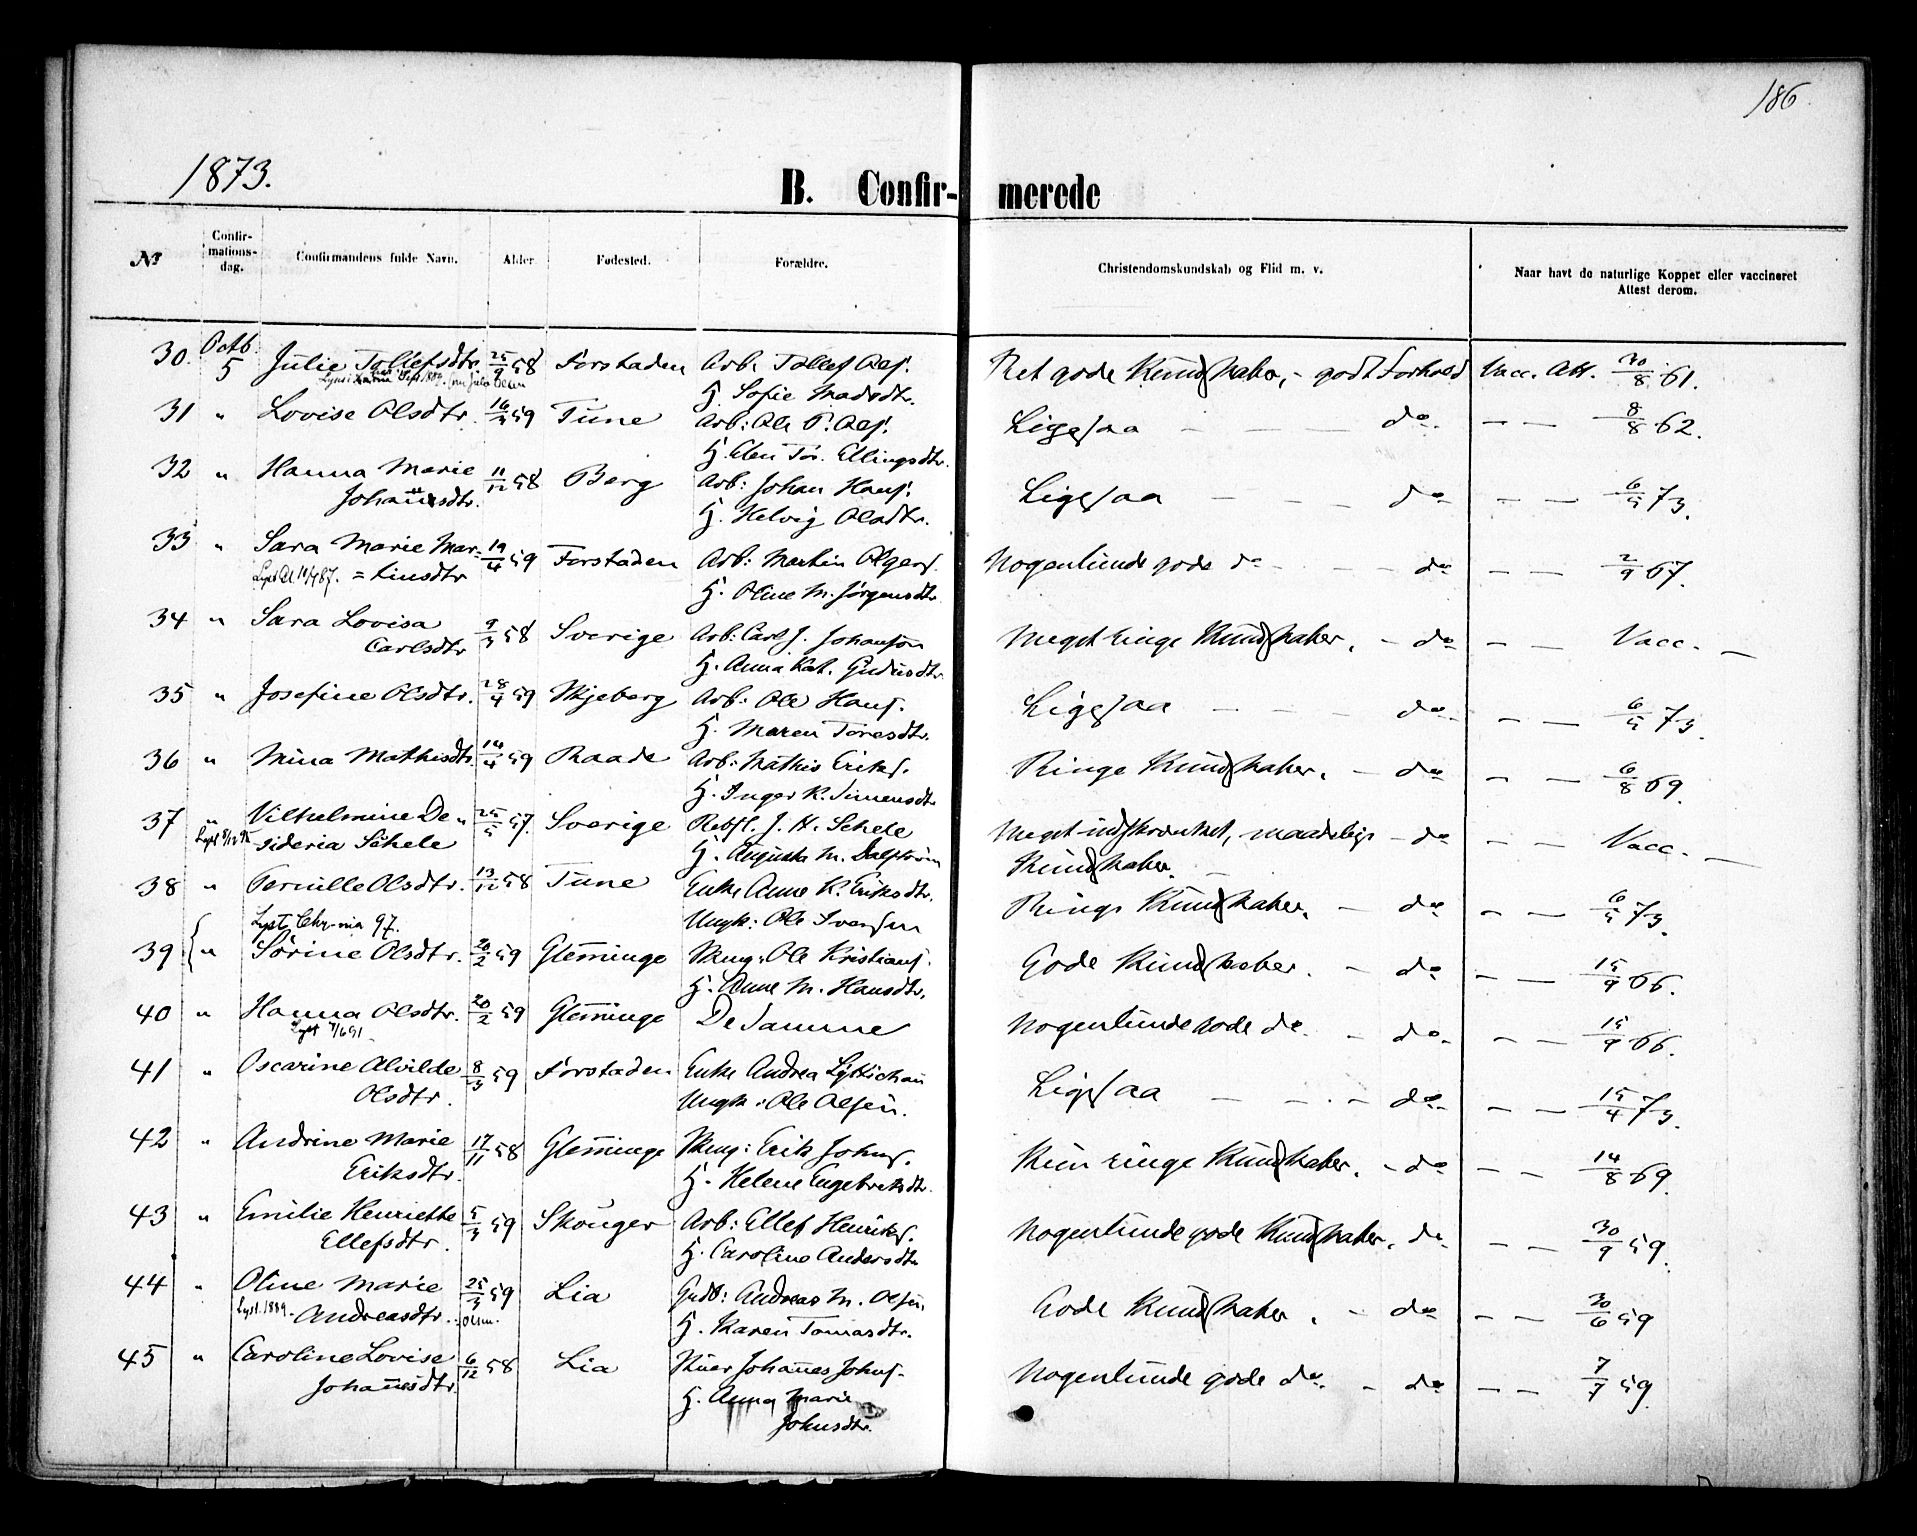 186.
1873.
B. Confir- merede
No Confir- mations- dag. Confirmandens fulde Navn. Alder. Fødested. Forældre. Christendomskundskab og Flid m. v. Naar havt de naturlige Kopper eller vaccineret
Attest derom.
30. Octb. 5 Julie Tollefsdtr. 25/9 58 Forstaden Arb. Tollef Ols. Ret gode Kundskaber, - godt Forhold Vacc. Att. 20/8 61.
H. Sofie Madsdtr.
31 " Lovise Olsdtr. 16/3 59 Tune Arb: Ole P. Ols. Ligesaa — — — do. — — 8/8 62.
H. Elen Tor. Ellingsdtr.
32 " Hanna Marie 11/12 58 Berg Arb: Johan Hans. Ligesaa — — do — — 6/5 73.
Johannesdtr. H. Helvig Olsdtr.
33 " Sara Marie Mar= 19/4 59 Forstaden Arb: Martin Olsens. Nogenlunde gode do — — do — — 2/9 67.
=tinsdtr H. Oline M. Jørgensdtr.
34 " Sara Lovisa 9/3 58 Sverige Arb: Carl J. Johanson Meget ringe Kundskaber. - do — — Vacc. —
Carlsdtr H. Anna Kat.
35 " Josefine Olsdtr. 28/4 59 Skjeberg Arb: Ole Hans. Ligesaa — — — do. — — 6/5 73.
H. Maren Toresdtr.
36 " Mina Mathisdtr. 14/4 59 Raade Arb: Mathis Eriks. Ringe Kundskaber. - do — — 6/8 69.
H. Inger K. Simensdtr
37 " Vilhelmine De= 25/5 57. Sverige Rebsl. J. H. Schele Meget indskrænket, maadelige - do — — Vacc. —
Lyst 8/12 95 sideria Schele H. Augusta M. Dalström Kundskaber. —
38 " Pernille Olsdtr. 13/12 58 Tune Enke Anne K. Eriksdtr. Ringe Kundskaber. - do — — 6/5 73.
Lyst Chr-nia 97. Ungk: Ole Svensen
39 " Sörine Olsdtr. 20/2 59 Gleminge Skmg: Ole Kristians. Gode Kundskaber. - do — — 15/9 66.
H. Anne M. Hansdtr.
40 " Hanna Olsdtr. 20/2 59 Gleminge De Samme Nogenlunde gode do. - do. — — 15/9 66.
Lyst 7/6 91
41 " Oscarine Alvilde 8/3 59 Forstaden Enke Andrea Lyttichau Ligesaa — — — do. — — 15/4 73.
Olsdtr. Ungk: Ole Olsen.
42 " Andrine Marie 17/11 58 Gleminge Skmg: Erik Johns. Kun ringe Kundskaber. - do — — 14/8 69.
Eriksdtr. H. Helene Engebretsdtr.
43 " Emilie Henriette 5/3 59 Skouger Arb: Ellef Henriks. Nogenlunde gode Kundskaber. do — — 30/9 59.
Ellefsdtr. H. Caroline Andersdtr
44 " Oline Marie 25/3 59 Lia Gndb: Andreas M. Olsen. Gode Kundskaber. - do — — 30/6 59
Lyst. 1889. Andreasdtr. Olsen. H. Karen Tomasdtr.
45 " Caroline Lovise 6/12 58 Lia Snver Johannes Johns. Nogenlunde gode do. - do — — 7/7 59.
Johannesdtr. H. Anna Marie
Johnsdtr.